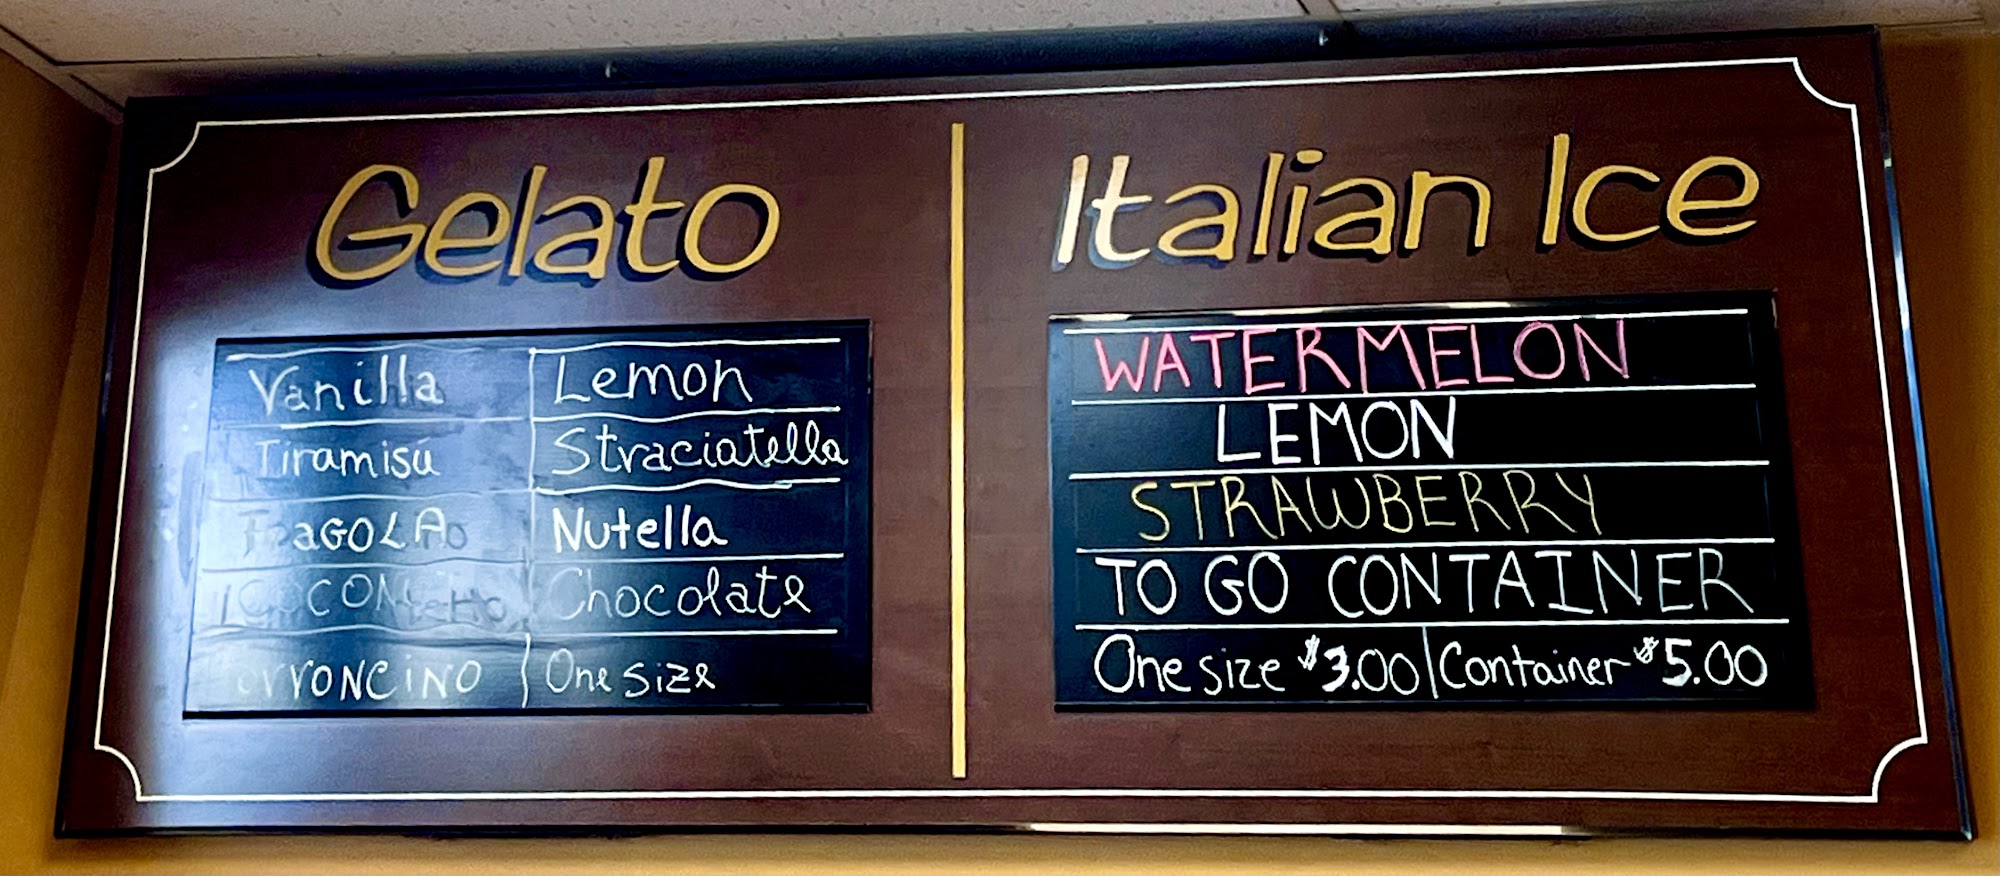 Gelato
Vanilla
Tiramisú
FRAGOLA
Lemon
Straciatella
Nutella
Chocolate
One size
Italian Ice
WATERMELON
LEMON
STRAWBERRY
TO GO CONTAINER
One size $3.00 | Container $5.00